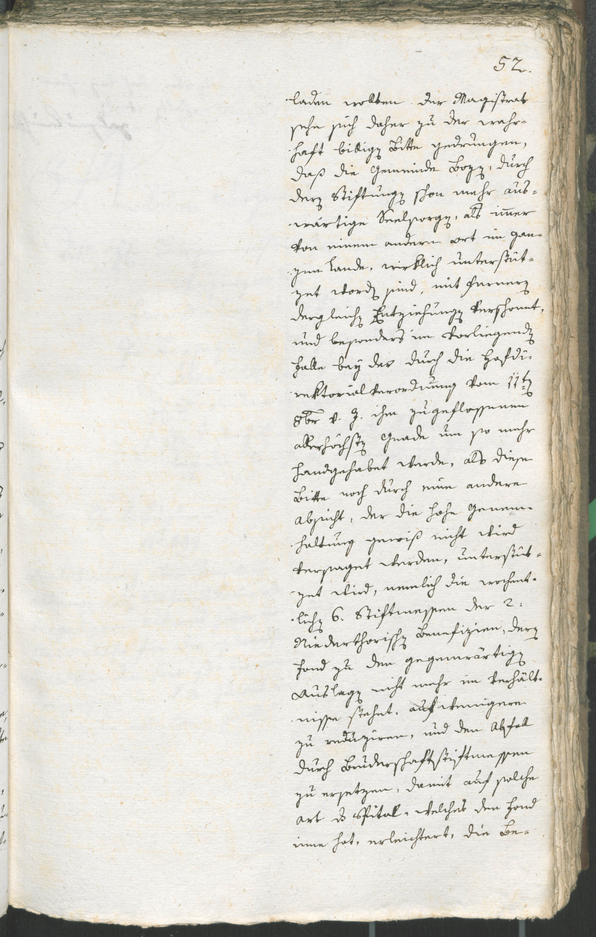 52.
laden wollten. Der Magistrat
sehe sich daher zu der wahr-
haft billigen Bitte gedrungen,
daß die Gemeinde Bozen, durch
deren Stiftungen schon mehr aus-
wärtige Seelsorgen, als immer
von einem andern ort im gan-
zen Lande, wirklich unterstüt-
zet worden sind, mit fernern
dergleichen Entziehungen verschonet,
und besonders im vorliegenden
Falle bey der durch die Hofdi-
rektorialverordnung vom 11ten
8br v. J. ihm zugeflossenen
allerhöchsten Gnade um so mehr
handgehabet werde, als diese
Bitte noch durch eine andere
Absicht, der die hohe Genem-
haltung gewiß nicht wird
versaget werden, unterstüt-
zet wird, nemlich die wochent-
lichen 6. Stiftmessen der 2.
Niederthorischen Benefizien, deren
Fond zu den gegenwärtigen
Auslagen nicht mehr im Verhält-
nisse stehet, auf wenigere
zu reduziren, und den Abfall
durch Bruderschaftsstiftmessen
zu ersetzen, damit auf solche
art das Spital, welches den Fond
inne hat, erleichtert, die Be-